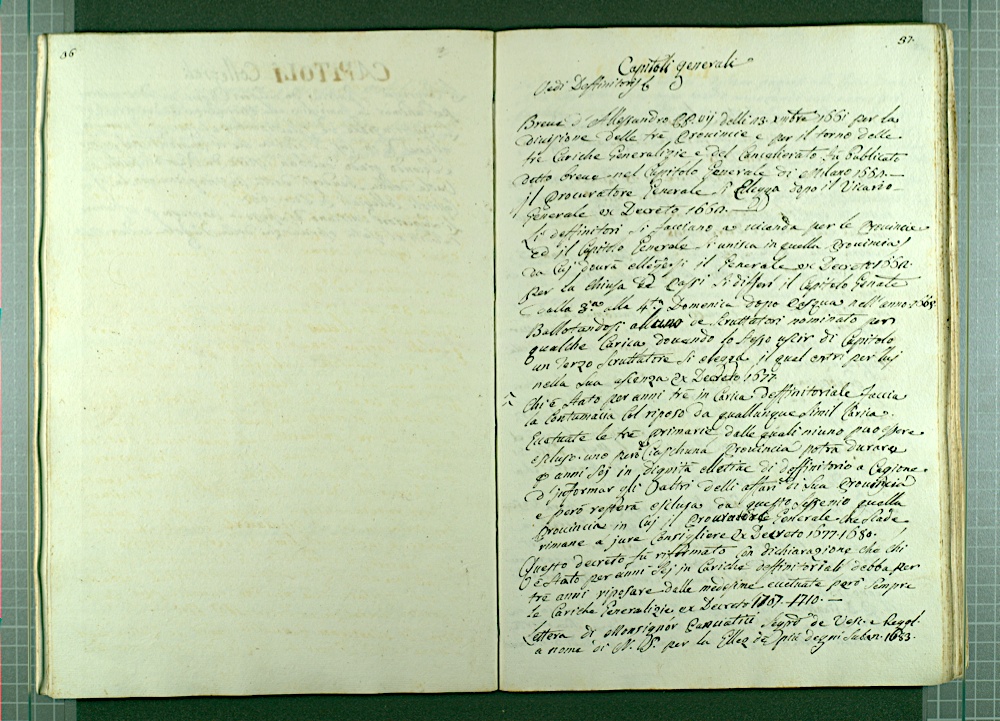 36
37.
Capitoli generali
Vedi Deffinitorij
Breve d'Alessandro PP. vij delli 13. xmbre 1661 per la
divisione delle tre Provincie e per il torno delle
tre Cariche Generalizie e del Consiglierato fu publicato
detto breve nel Capitolo Generale di Milano 1662.
Il Procuratore Generale si Elegga dopo il Vicario
Generale ex Decreto 1662.
Li deffinitori si facciano a vicenda per le Provincie
Ed il Capitolo Generale si unisca in quella Provincia
da cuj dovrà elleggersi il Generale ex Decreto 1662.
Per la chiusa de passi si differì il Capitolo Genale
dalla 3ª alla 4ª Domenica dopo Pasqua nell'anno 1668
Ballotandosi alcuno de Scruttatori nominato per
qualche Carica dovendo lo stesso uscir di Capitolo
un terzo Scruttatore si elegga il qual servi per luj
nella sua assenza ex Decreto 1677
Chi è stato per anni tre in Carica deffinitoriale faccia
la contumacia col riposo da quallunque simil Carica
Eccetuate le tre primarie dalle quali niuno può essere
escluso uno però ciaschuna Provincia potrà durare
anni sej in dignità ellettae di deffinitorio a Cagione
d'informar gli altri delli affari di sua Provincia
e però resterà esclusa da questo sessenio quella
Provincia in cuj il Procuratore Generale che scade
rimane a jure Consigliere ex Decreto 1677. 1680.
Questo decreto fu riformato con dichiarazione che chi
è stato per anni sej in Cariche deffinitoriali debba per
tre anni riposare dalle medesime eccetuate però sempre
le Cariche Generalizie ex Decreto 1707. 1710.
Lettera di Monsignor Segro de Vesc. e Reggl.
a nome di N. S. per la Ellez.ne più degni 1683.